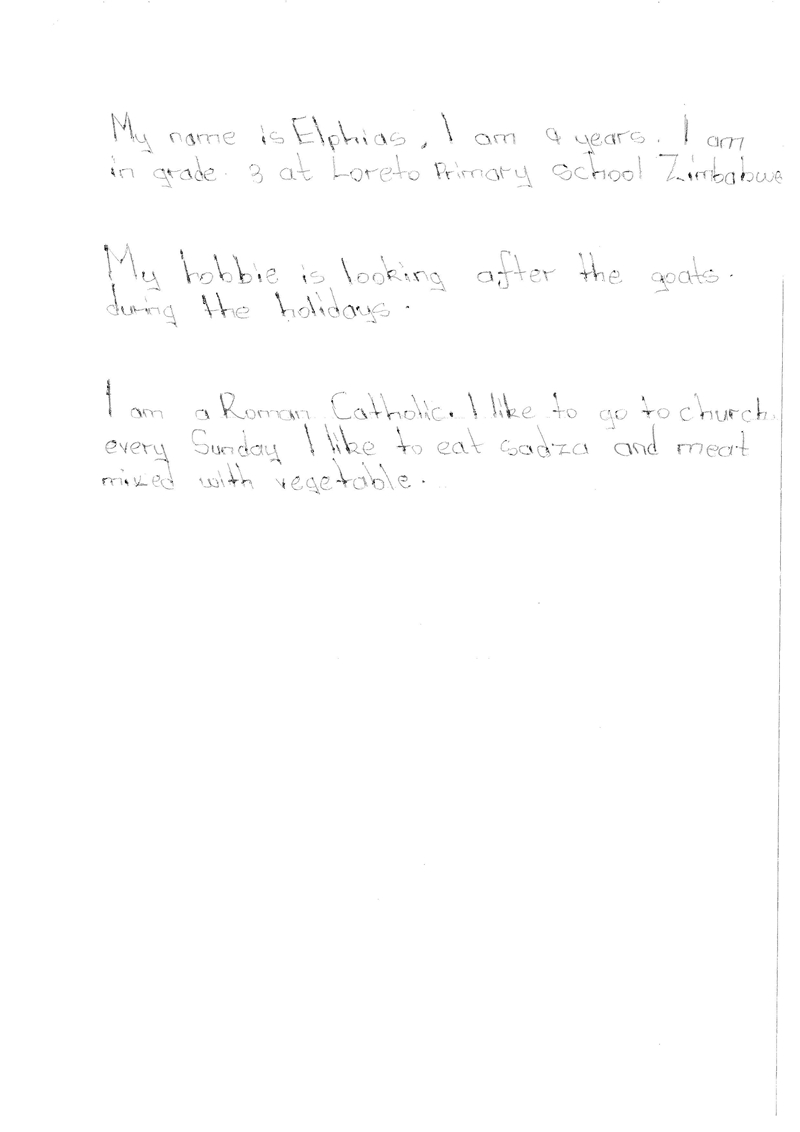 My name is Elphias, I am 9 years. I am
in grade. 3 at Loreto Primary school Zimbabwe
My hobbie is looking after the goats.
during the holidays.
I am a Roman Catholic. I like to go to church.
every Sunday I like to eat sadza and meat
mixed with vegetable.